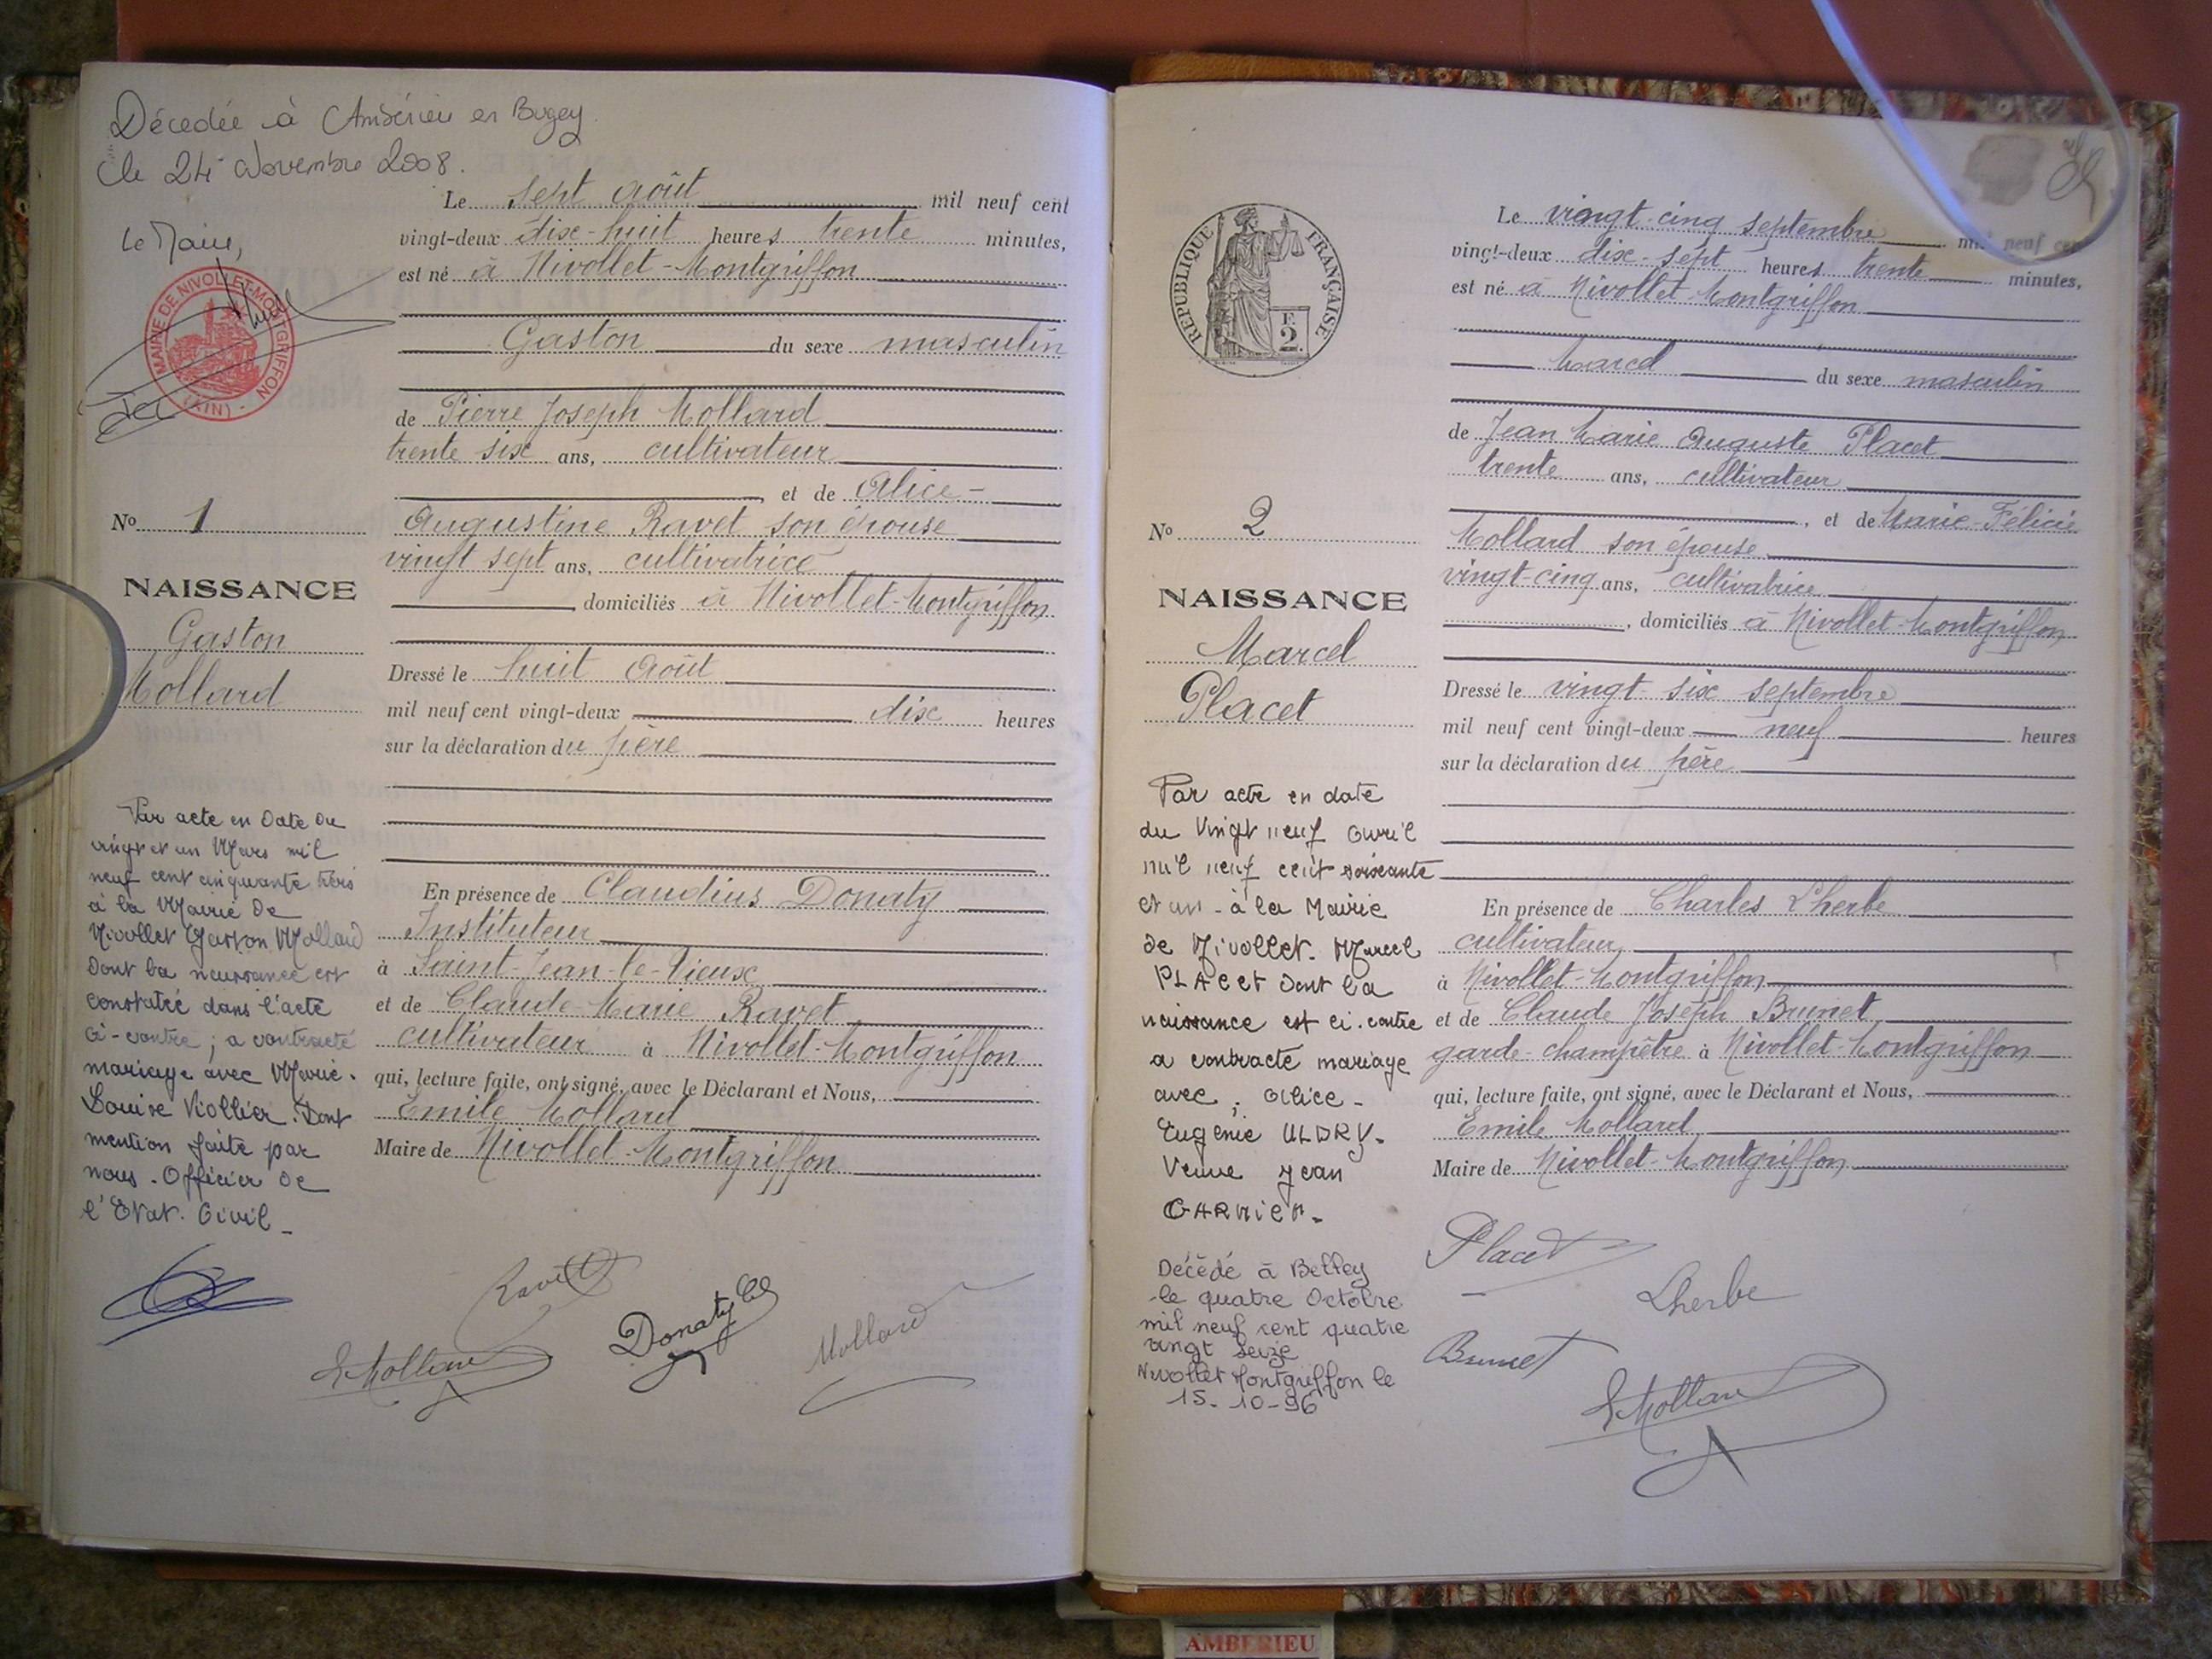 Décedée à Ambérieu en Bugey.
le 24 Novembre 2008.
Le Maire,
MAIRIE DE NIVOLLET-MONTGRIFFON
(AIN)
Le sept août mil neuf cent
vingt-deux dix-huit heures trente minutes,
est né à Nivollet-Montgriffon
Gaston du sexe masculin
de Pierre Joseph Mollard
trente six ans, cultivateur
, et de Alice-
Augustine Ravet son épouse
vingt sept ans, cultivatrice
, domiciliés à Nivollet-Montgriffon
Dressé le huit août
mil neuf cent vingt-deux dix heures
sur la déclaration du père
En présence de Claudius Donaty
Instituteur
à Saint-Jean-le-Vieux
et de Claude-Marie Ravet
cultivateur à Nivollet-Montgriffon
qui, lecture faite, ont signé, avec le Déclarant et Nous,
Emile Mollard
Maire de Nivollet-Montgriffon
No 1
NAISSANCE
Gaston
Mollard
Par acte en date du
vingt et un Mars mil
neuf cent cinquante trois
à la Mairie de
Nivollet Gaston Mollard
dont la naissance est
constatée dans l'acte
ci-contre ; a contracté
mariage avec Marie-
Louise Viollier. Dont
mention faite par
nous. Officier de
l'Etat. Civil_
Ravet
E Mollard
Donaty Cl
Mollard
REPUBLIQUE FRANÇAISE
E.
2
Le vingt-cinq septembre mil neuf cent
vingt-deux dix-sept heures trente minutes,
est né à Nivollet-Montgriffon
Marcel du sexe masculin
de Jean Marie Auguste Placet
trente ans, cultivateur
, et de Marie-Félicie
Mollard son épouse
vingt-cinq ans, cultivatrice
, domiciliés à Nivollet-Montgriffon
Dressé le vingt-six septembre
mil neuf cent vingt-deux neuf heures
sur la déclaration du père
En présence de Charles Lherbe
cultivateur
à Nivollet-Montgriffon
et de Claude Joseph Brunet
garde-champêtre à Nivollet-Montgriffon
qui, lecture faite, ont signé, avec le Déclarant et Nous,
Emile Mollard
Maire de Nivollet-Montgriffon
No 2
NAISSANCE
Marcel
Placet
Par acte en date
du vingt neuf avril
mil neuf cent soixante
et un - à la Mairie
de Nivollet. Marcel
PLACET dont la
naissance est ci. contre
a contracté mariage
avec ; Alice-
Eugénie ULDRY-
Veuve Jean
GARNIER-
Décédé à Belley
le quatre Octobre
mil neuf cent quatre
vingt seize
Nivollet Montgriffon le
15-10-96
Placet
Lherbe
Brunet
E Mollard
AMBERIEU